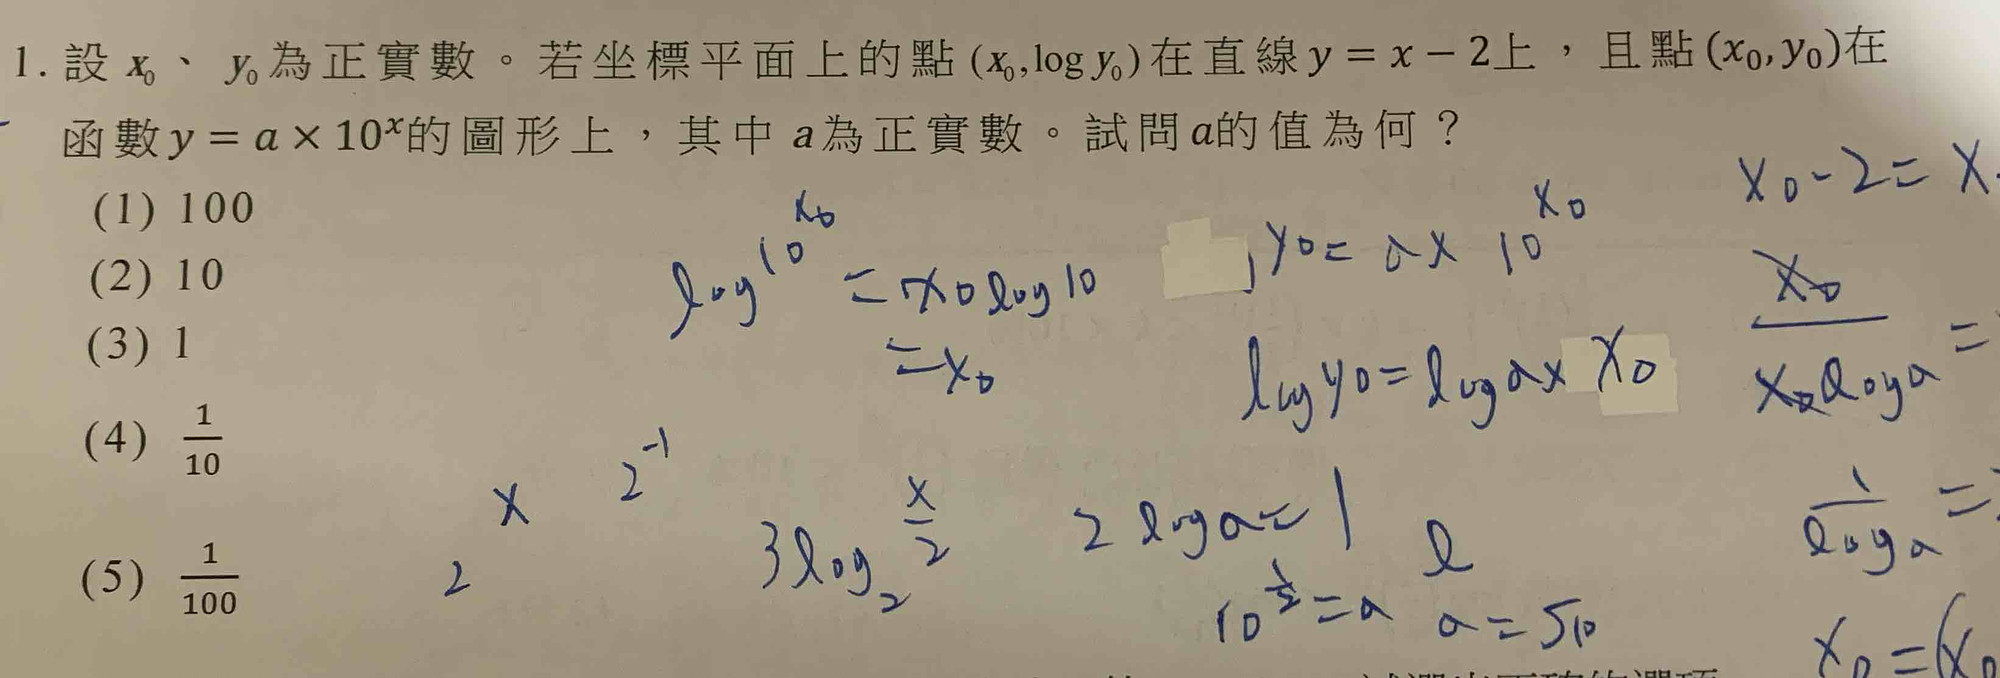 1. 設 x₀、 y₀為正實數。若坐標平面上的點 (x₀,log y₀)在直線y = x − 2上，且點(x₀,y₀)在
函數y = a × 10ˣ的圖形上，其中 a為正實數。試問a的值為何？
(1) 100
(2) 10
(3) 1
(4) 1/10
(5) 1/100
log10^x₀ = x₀log10
= x₀
y₀ = a x 10^x₀
log y₀ = log a x x₀
x₀ - 2 = x
x₀
x₀ log a =
1/log a =
2^x
2^-1
3log₂ x/2
2 log a = 1
10^1/2 = a
l
a = √10
x₀ = (x₀